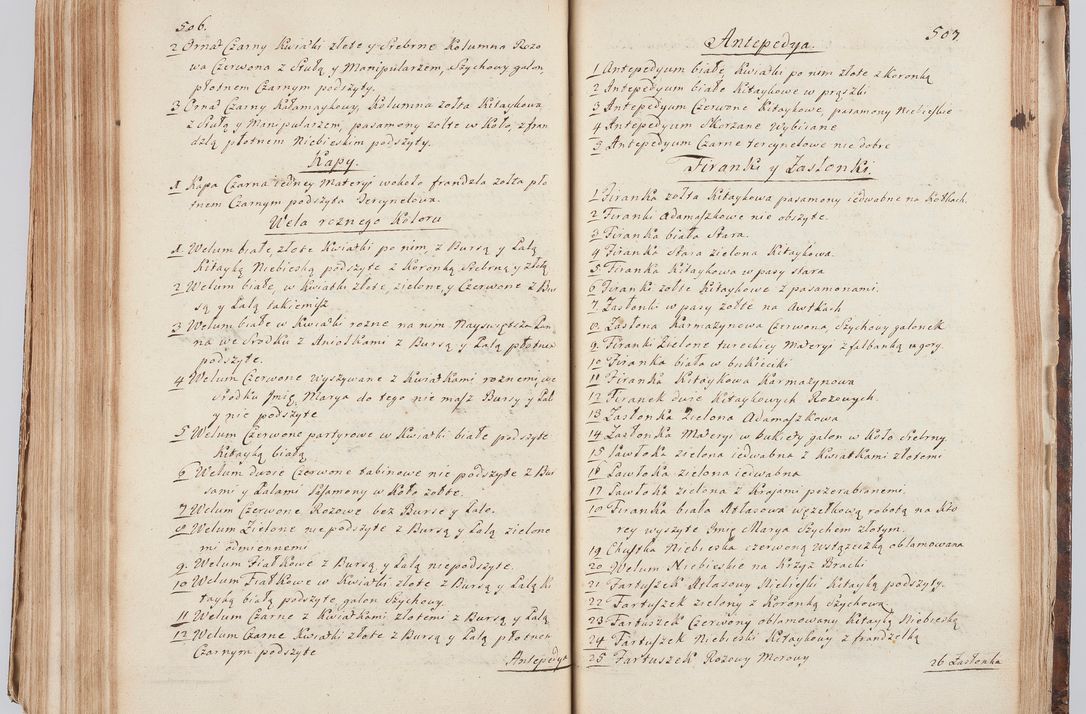 506.
2 Ornat Czarny Kwiatki złote y Srebrne Kolumna Rozo
wa Czerwona z Stułą y Manipularzem, Szychowy galon,
płotnem Czarnym podszyty.
3 Ornat Czarny Kałamaykowy, Kolumna zołta Kitaykowa
z Stułą y Manipularzem, pasamony zołte w Koło, z fran
dzlą płotnem Niebieskim podszyty.
Kapy.
1 Kapa Czarna iedney Materyi wokoło frandzla zołta pło
tnem Czarnym podszyta Tercynelowa.
Wela roznego Koloru
1. Welum białe, złote Kwiatki po nim, z Bursą y Palą
Kitayką Niebieską podszyte z Koronką Srebrną y złotą
2 Welum białe, w Kwiatki złote, zielone, y Czerwone z Bur
są y Palą takiemiż
3 Welum białe w Kwiatki rozne na nim Nayswiętsza Pan
na we Srodku z Aniołkami z Bursą y Palą płotnem
podszyte.
4 Welum Czerwone Wyszywane z Kwiatkami roznemi, we
srodku Jmię Marya do tego nie masz Bursy y Pal
y nie podszyte
5 Welum Czerwone partyrowe w Kwiatki białe podszyte
Kitayką białą
6 Welum dwoie Czerwone tabinowe nie podszyte z Bur
sami y Palami Pasamony w Koło zołte.
7 Welum Czerwone Rozowe bez Bursy y Pale.
8 Welum Zielone nie podszyte z Bursą y Palą zielone
mi odmiennemi
9. Welum Fiałkowe z Bursą y Palą niepodszyte.
10 Welum Fiałkowe w Kwiatki złote z Bursą y Palą Ki
tayką białą podszyte, galon Szychowy.
11 Welum Czarne z Kwiatkami złotemi z Bursą y Palą
12 Welum Czarne Kwiatki złote z Bursą y Palą płotnem
Czarnym podszyte
Antepedya
507.
Antepedya.
1 Antepedyum białe, Kwiatki po nim złote z Koronką
2 Antepedyum białe Kitaykowe w prązki
3 Antepedyum Czerwone Kitaykowe, pasamony Niebieskie
4 Antepedyum Skorzane Wybirane
5 Antepedyum Czarne tercynelowe nie dobre
Firanki y Zasłonki.
1 Firanka zołta Kitaykowa pasamony iedwabne na Kołkach.
2 Firanki Adamaszkowe nie obszyte.
3 Firanka biała Stara.
4 Firanka Stara zielona Kitaykowa.
5 Firanka Kitaykowa w pasy stara
6 Firanki zołte Kitaykowe z pasamonami.
7 Zasłonki w pasy zołte na Awtkach
8 Zasłona Karmazynowa Czerwona, Szychowy galonek
9 Firanki Zielone tureckiey Materyi z falbanką u gory.
10 Firanka biała w bukieciki
11 Firanka Kitaykowa Karmazynowa
12 Firanek dwie Kitaykowych Rozowych.
13 Zasłonka Zielona Adamaszkowa
14 Zasłonka Materyi w bukiety galon w Koło Srebrny.
15 Pawłoka zielona iedwabna z Kwiatkami złotemi
16 Pawłoka zielona iedwabna
17 Pawłoka zielona z Krajami przerabianemi.
18 Firanka biała Atłasowa węzełkową robotą na Kto
rey wyszyte Jmię Marya Szychem złotym.
19 Chustka Niebieska czerwoną wstązeczką oblamowana
20 Welum Niebieskie na Krzyż Bracki
21 Fartuszek Atłasowy Niebieski Kitayką podszyty.
22 Fartuszek zielony z Koronką Szychową
23 Fartuszek Czerwony oblamowany Kitayką Niebieską
24 Fartuszek Niebieski Kitaykowy z frandzelką
25 Fartuszek Rozowy Morowy
26 Zasłonka